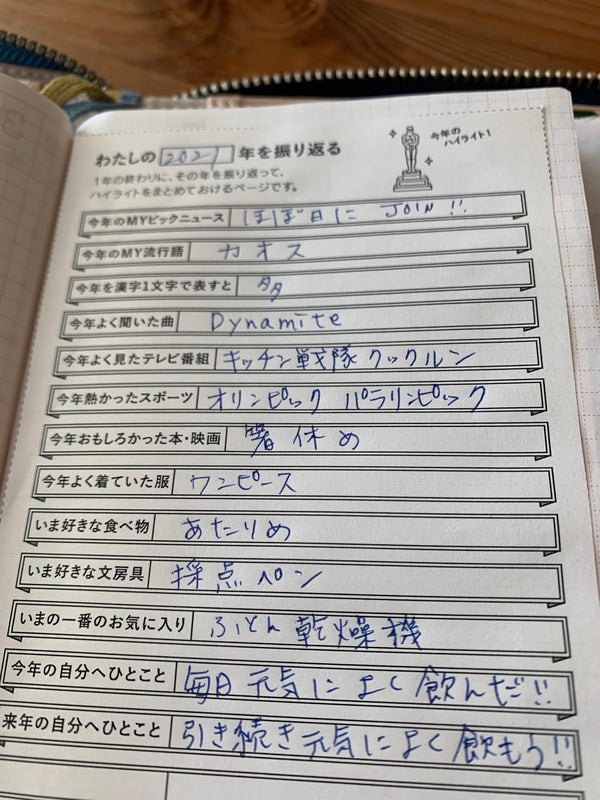 わたしの 2021 年を振り返る
1年の終わりに、その年を振り返って、
ハイライトをまとめておけるページです。
今年の
ハイライト!
今年のMYビックニュース ほぼ日に JOIN!!
今年のMY流行語 カオス
今年を漢字1文字で表すと 多
今年よく聞いた曲 Dynamite
今年よく見たテレビ番組 キッチン戦隊クックルン
今年熱かったスポーツ オリンピック パラリンピック
今年おもしろかった本・映画 箸休め
今年よく着ていた服 ワンピース
いま好きな食べ物 あたりめ
いま好きな文房具 採点ペン
いまの一番のお気に入り ふとん乾燥機
今年の自分へひとこと 毎日元気によく飲んだ!!
来年の自分へひとこと 引き続き元気によく飲もう!!